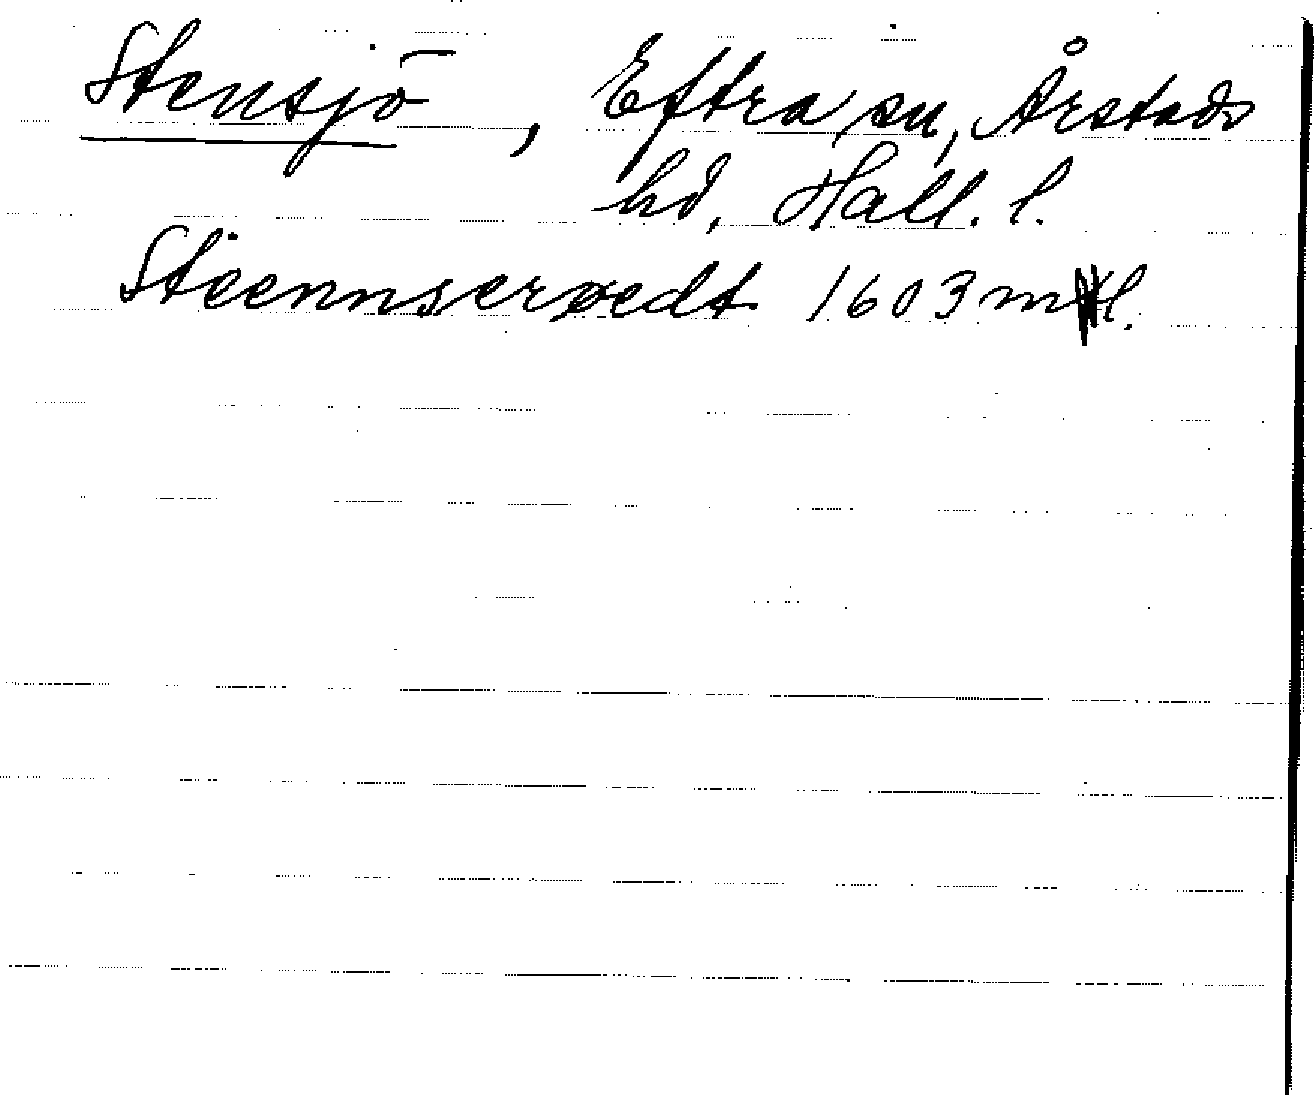 Stensjö, Eftra sn, Årstads
hd, Hall. l.
Steennserødt 1603 ml.